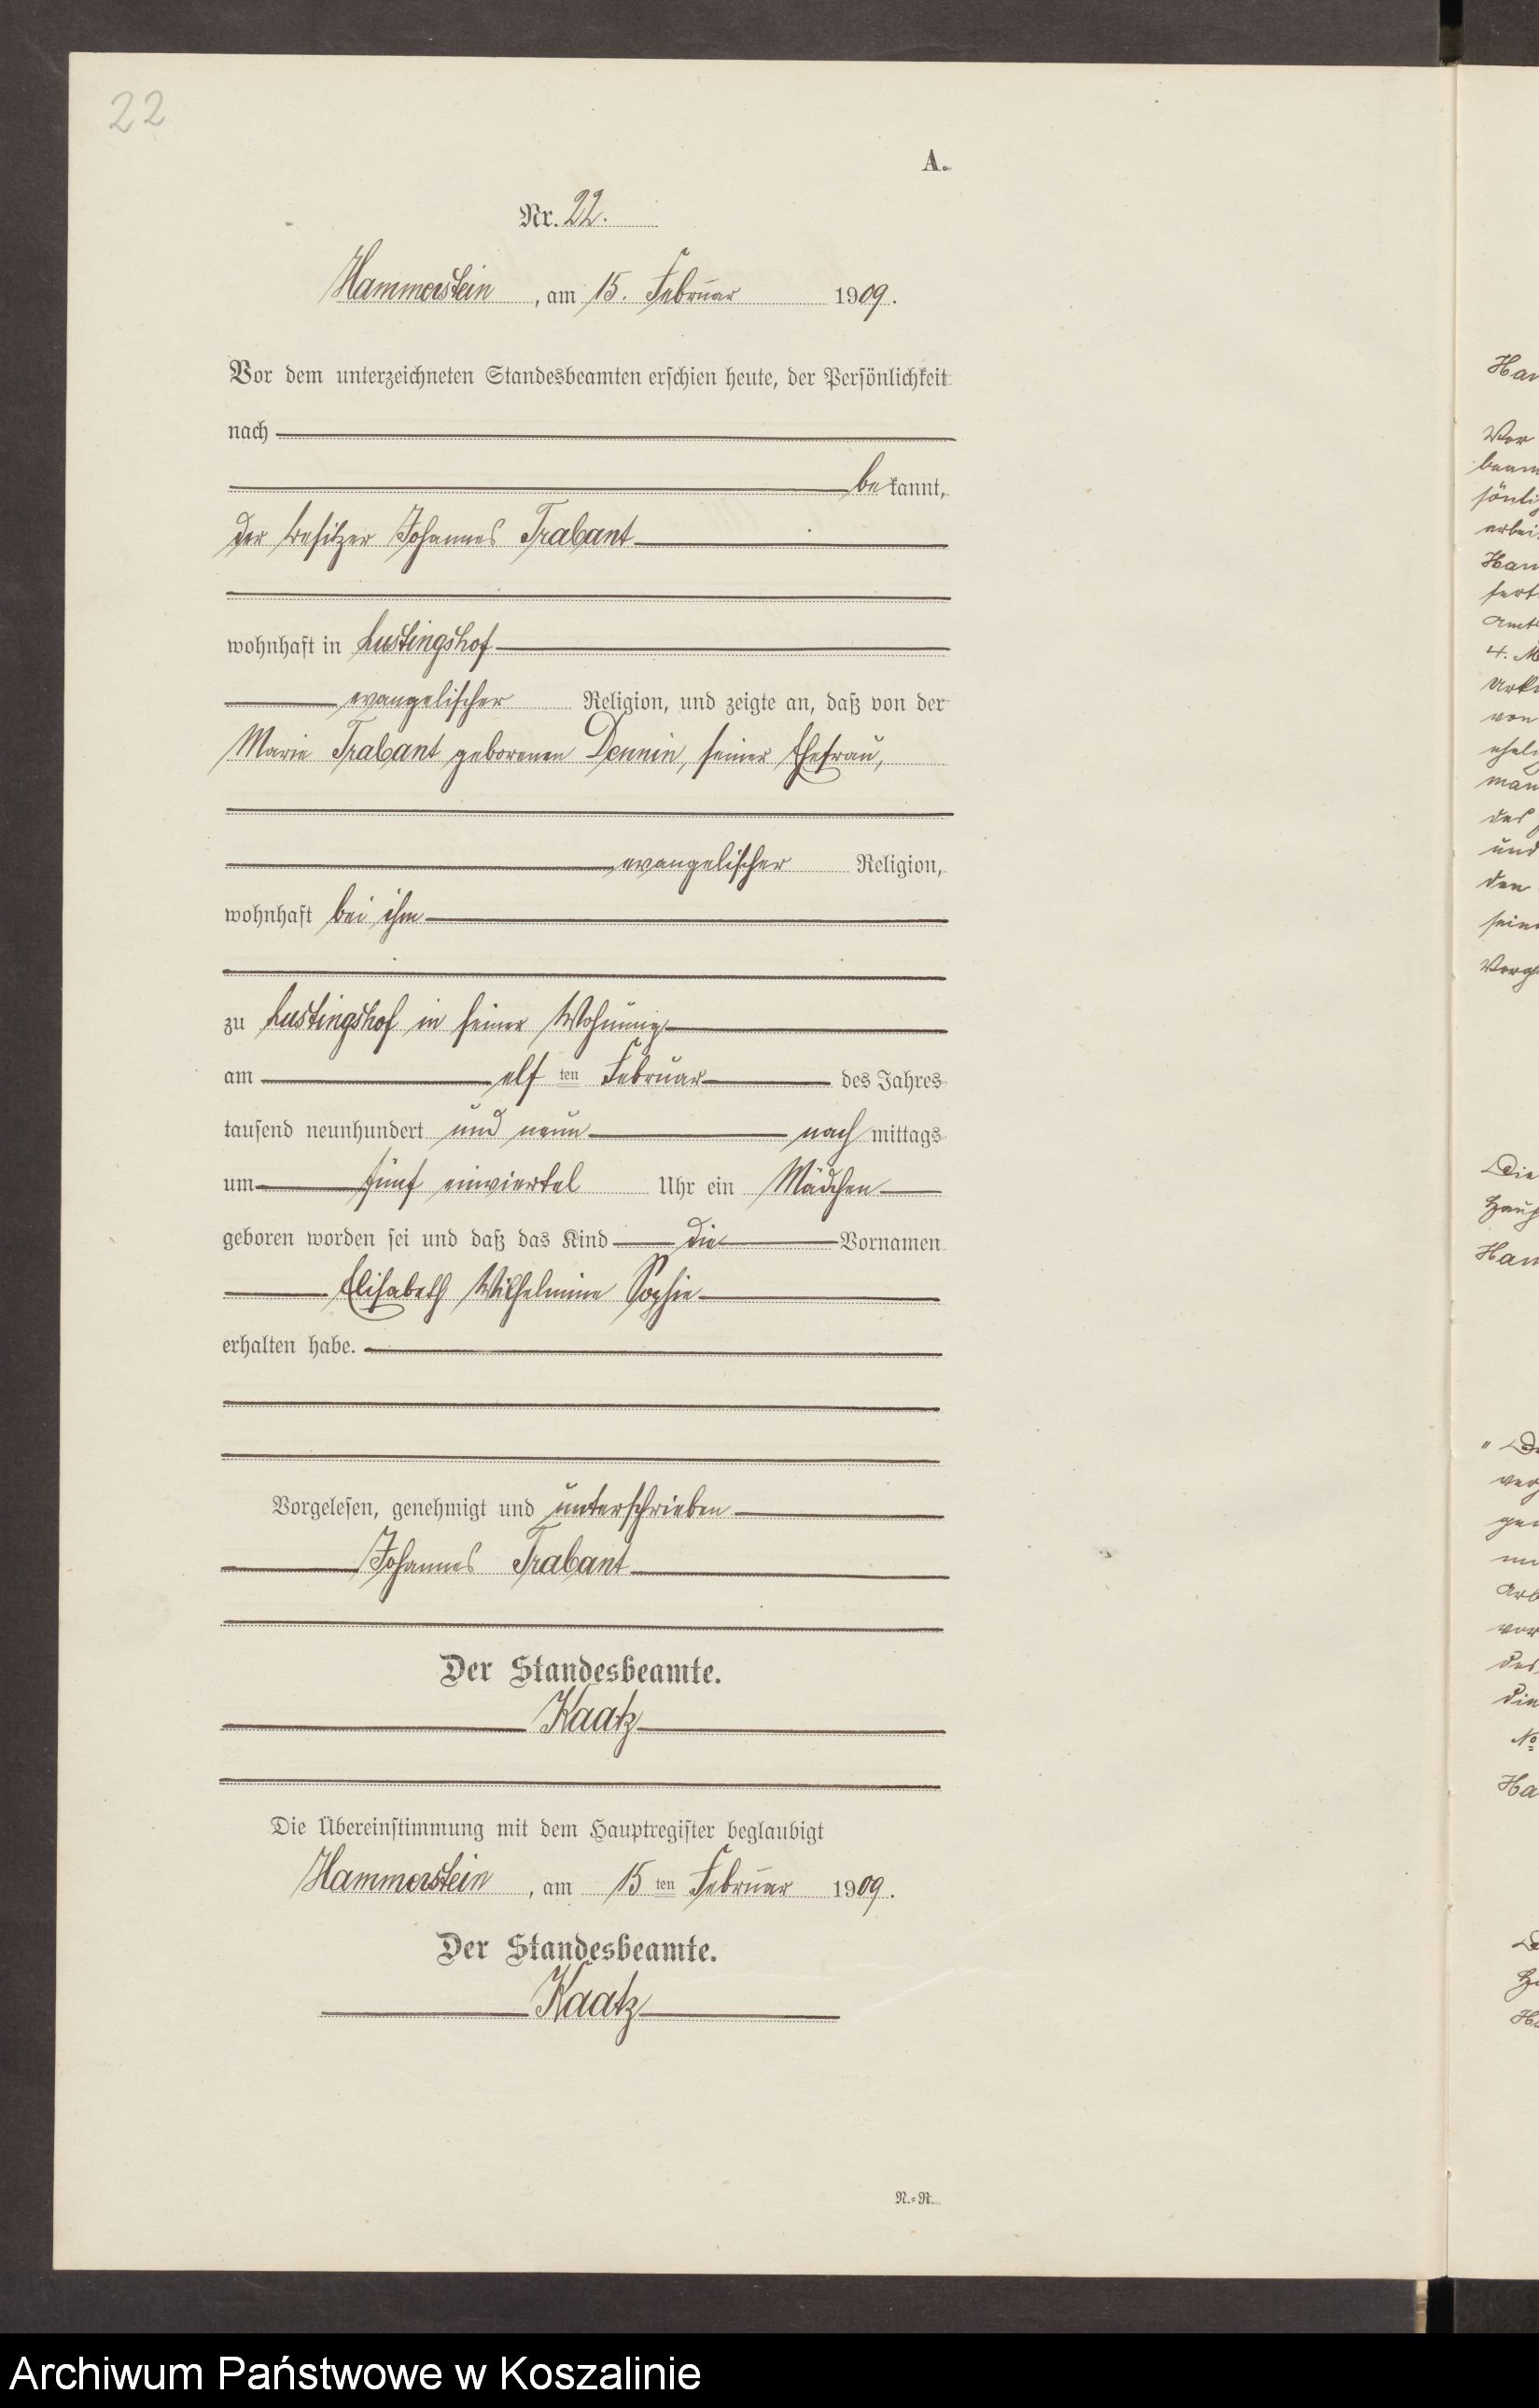 22
A.
Nr. 22.
Hammerstein, am 15. Februar 1909.
Vor dem unterzeichneten Standesbeamten erschien heute, der Persönlichkeit
nach
bekannt,
der Besitzer Johannes Trabant
wohnhaft in Lustingshof
evangelischer Religion, und zeigte an, daß von der
Marie Trabant geborenen Dennin, seiner Ehefrau,
evangelischer Religion,
wohnhaft bei ihm
zu Lustingshof in seiner Wohnung
am elf ten Februar des Jahres
tausend neunhundert und neun nach mittags
um fünf einviertel Uhr ein Mädchen
geboren worden sei und daß das Kind die Vornamen
Elisabeth Wilhelmine Sophie
erhalten habe.
Vorgelesen, genehmigt und unterschrieben
Johannes Trabant
Der Standesbeamte.
Kaatz
Die Übereinstimmung mit dem Hauptregister beglaubigt
Hammerstein, am 15 ten Februar 1909.
Der Standesbeamte.
Kaatz
N.=R.
Archiwum Państwowe w Koszalinie